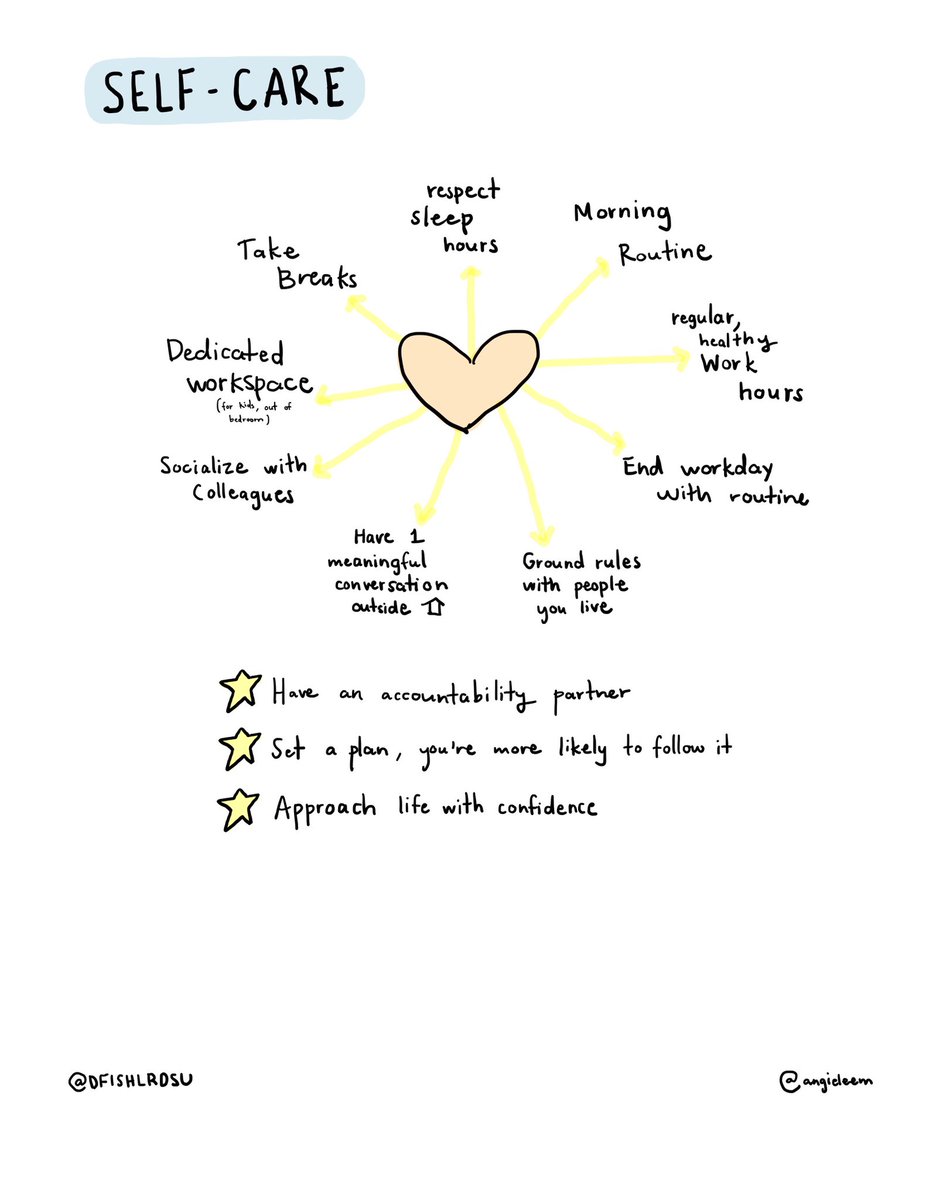 SELF-CARE
respect
sleep
hours
Morning
Routine
Take
Breaks
regular,
healthy
Work
hours
Dedicated
workspace
(for kids, out of
bedroom)
End workday
with routine
Socialize with
Colleagues
Have 1
meaningful
conversation
outside
Ground rules
with people
you live
Have an accountability partner
Set a plan, you're more likely to follow it
Approach life with confidence
@DFISHLRDSU
@angideem